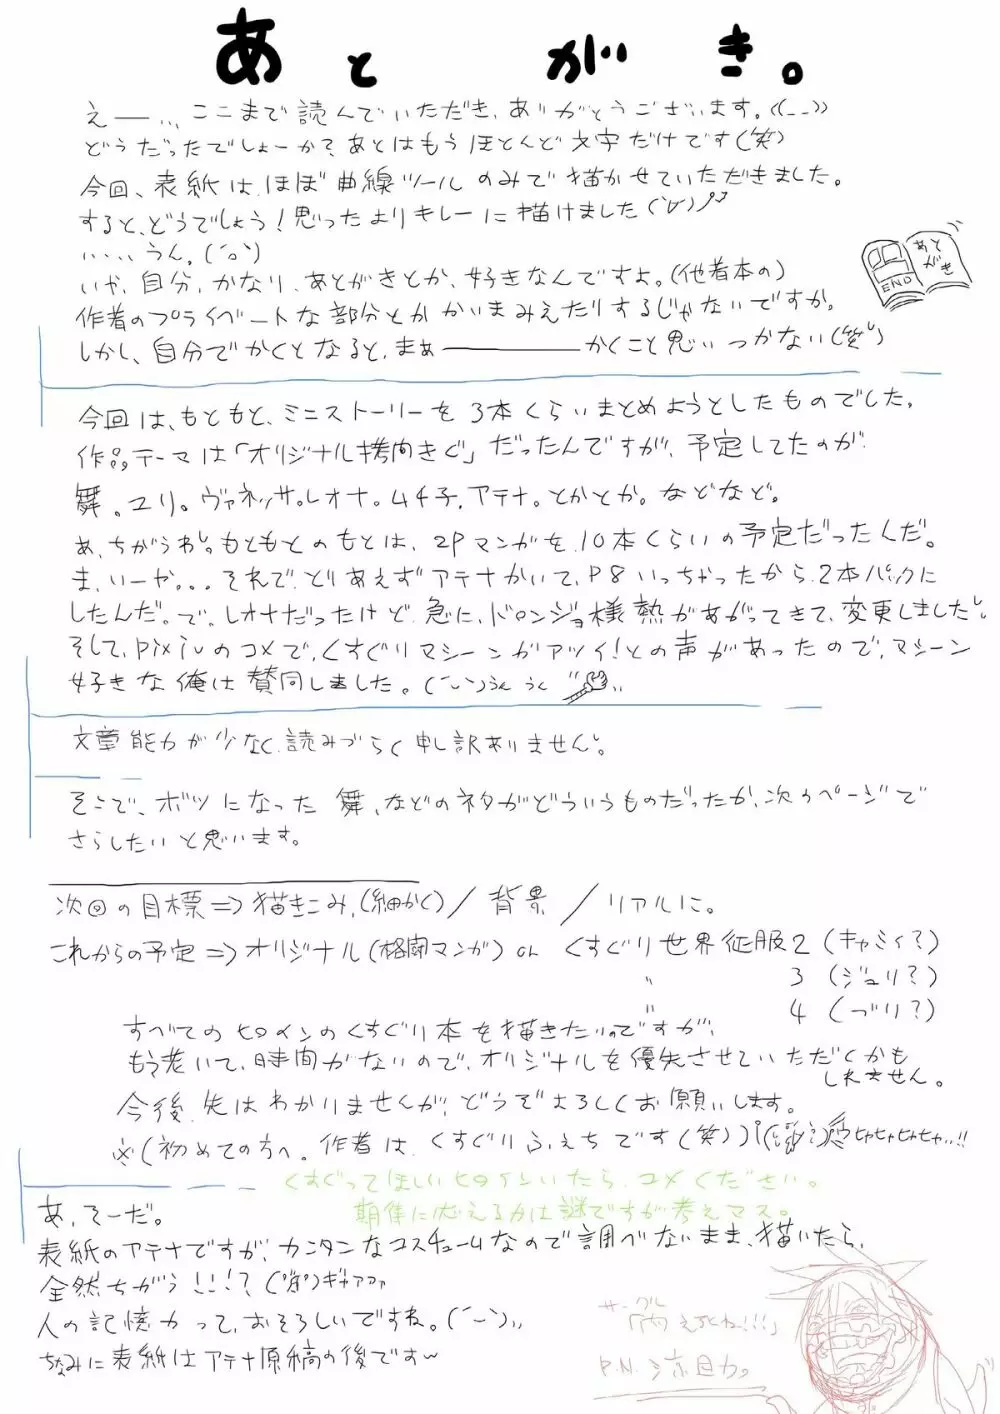 あとがき。
えー… ここまで読んでいただき、ありがとうございます。((_ _))
どうだったでしょーか？あとはもうほとんど文字だけです(笑)
今回、表紙は、ほぼ曲線ツールのみで描かせていただきました。
すると、どうでしょう！思ったよりキレーに描けました(´∀`)ノ
・・・・うん。(´o`)
いや、自分、かなり、あとがきとか、好きなんですよ。(他者本の)
作者のプライベートな部分とかかいまみえたりするじゃないですか。
しかし、自分でかくとなると、まぁ――――かくこと思いつかない(笑)
あとがき
END
今回は、もともと、ミニストーリーを3本くらいまとめようとしたものでした。
作品テーマは「オリジナル拷問きぐ」だったんですが、予定してたのが
舞。ユリ。ヴァネッサ。レオナ。ムチ子。アテナ。とかとか。などなど。
あ、ちがうわ。もともとのもとは、2Pマンガを10本くらいの予定だったんだ。
ま、いーや。。。それで、とりあえずアテナかいて、P8いっちゃったから、2本パックに
したんだ。で。レオナだったけど、急に、ドロンジョ様熱があがってきて、変更しました。
そして、pixivのコメで、くすぐりマシーンがアツイ！との声があったので、マシーン
好きな俺は賛同しました。(´ー`)うんうん
文章能力が少なく読みづらく申し訳ありません。
そこで、ボツになった舞、などのネタがどういうものだったか、次のページで
さらしたいと思います。
次回の目標⇒描きこみ,(細かく)/背景/リアルに。
これからの予定⇒オリジナル(格闘マンガ)or くすぐり世界征服2(キャミィ？)
〃 3(ジュリ？)
〃 4(づり？)
すべてのヒロインのくすぐり本を描きたいのですが、
もう老いて、時間がないので、オリジナルを優先させていただくかも
しれません。
今後、先はわかりませんが、どうぞよろしくお願いします。
※(初めての方へ。作者は、くすぐりふぇちです(笑))
くすぐってほしいヒロインいたら、コメください。
期待に応えるかは謎ですが考えマス。
あ、そーだ。
表紙のアテナですが、カンタンなコスチュームなので調べないまま、描いたら、
全然ちがう！！！？(゜Д゜)ギャアアア
人の記憶力って、おそろしいですね。(´ー`)
ちなみに表紙はアテナ原稿の後です〜
サークル
P.N.涼